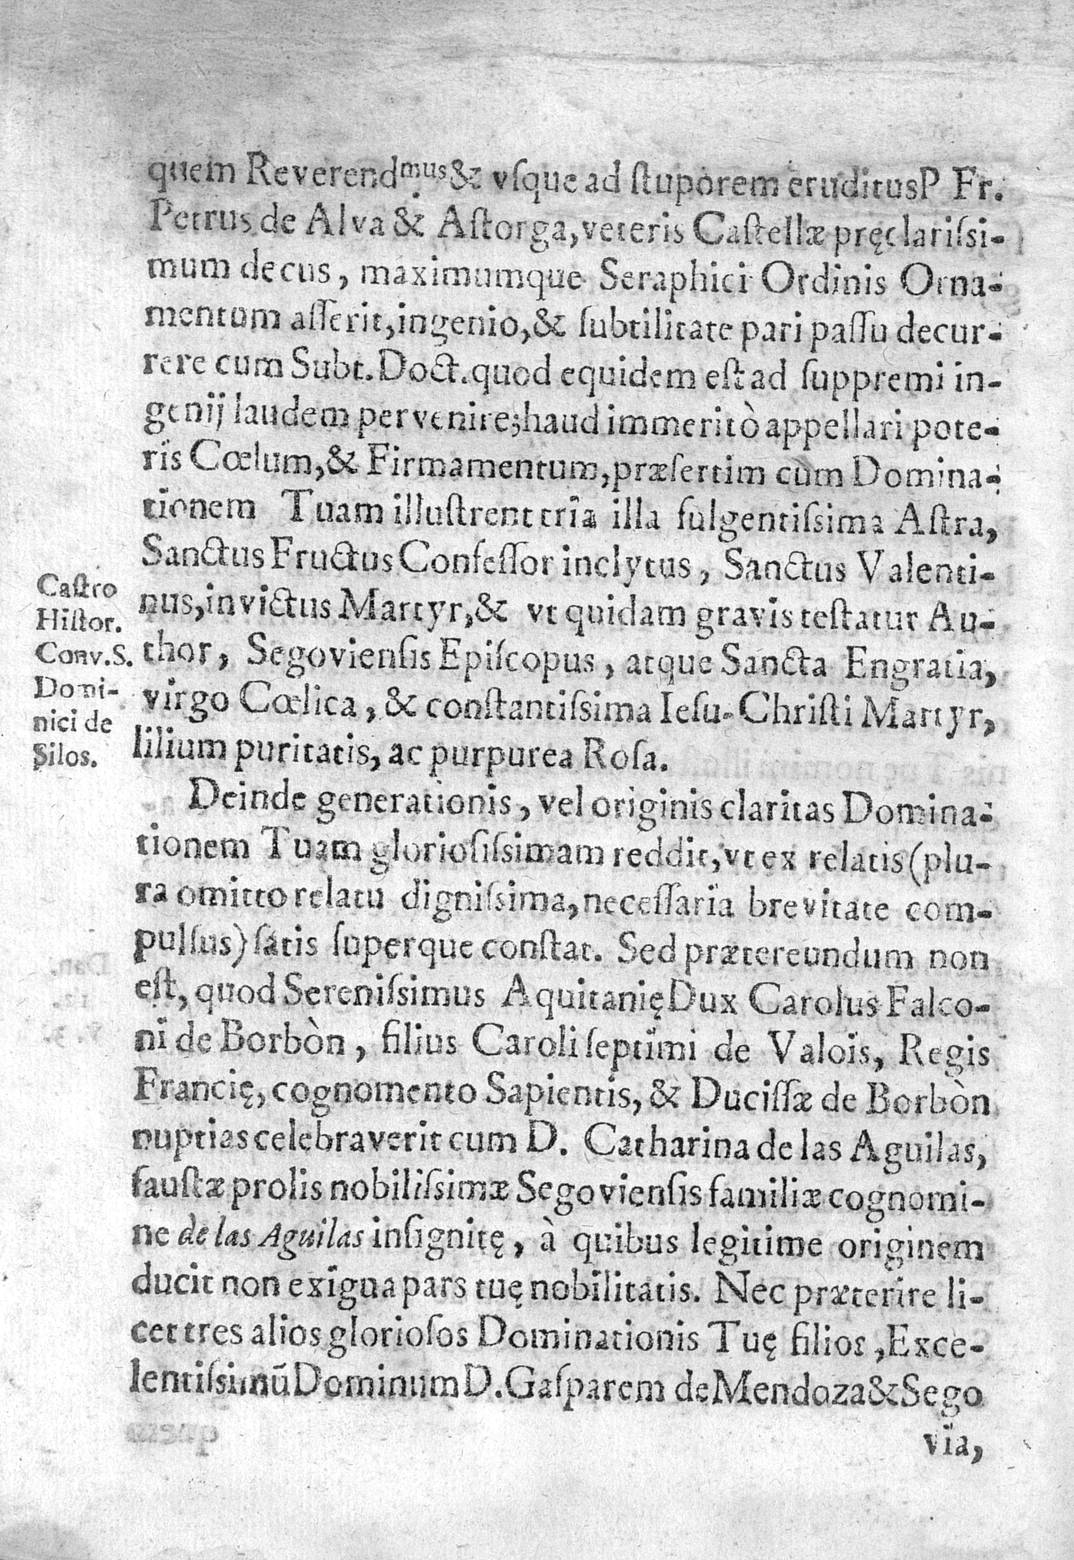 quem Reverendmus & vſque ad ſtuporem eruditus P Fr.
Petrus de Alva & Aſtorga, veteris Caſtellæ pręclariſsi-
mum decus, maximumque Seraphici Ordinis Orna-
mentum aſſerit, ingenio, & ſubtilitate pari paſſu decur-
rere cum Subt. Doct. quod equidem eſt ad ſuppremi in-
genij laudem pervenire; haud immeritò appellari pote-
ris Cœlum, & Firmamentum, præſertim cùm Domina-
tionem Tuam illuſtrent tria illa fulgentiſsima Aſtra,
Sanctus Fructus Confeſſor inclytus, Sanctus Valenti-
nus, invictus Martyr, & vt quidam gravis teſtatur Au-
thor, Segovienſis Epiſcopus, atque Sancta Engratia,
virgo Cœlica, & conſtantiſsima Ieſu-Chriſti Martyr,
lilium puritatis, ac purpurea Roſa.
Caſtro
Hiſtor.
Conv. S.
Domi-
nici de
Silos.
Deinde generationis, vel originis claritas Domina-
tionem Tuam glorioſiſsimam reddit, vt ex relatis (plu-
ra omitto relatu digniſsima, neceſſaria brevitate com-
pulſus) ſatis ſuperque conſtat. Sed prætereundum non
eſt, quod Sereniſsimus Aquitanię Dux Carolus Falco-
ni de Borbòn, filius Caroli ſeptimi de Valois, Regis
Francię, cognomento Sapientis, & Duciſſæ de Borbòn
nuptias celebraverit cum D. Catharina de las Aguilas,
fauſtæ prolis nobiliſsimæ Segovienſis familiæ cognomi-
ne de las Aguilas inſignitę, à quibus legitime originem
ducit non exigua pars tuę nobilitatis. Nec præterire li-
cet tres alios glorioſos Dominationis Tuę filios, Exce-
lentiſsimũ Dominum D. Gaſparem de Mendoza & Sego
via,